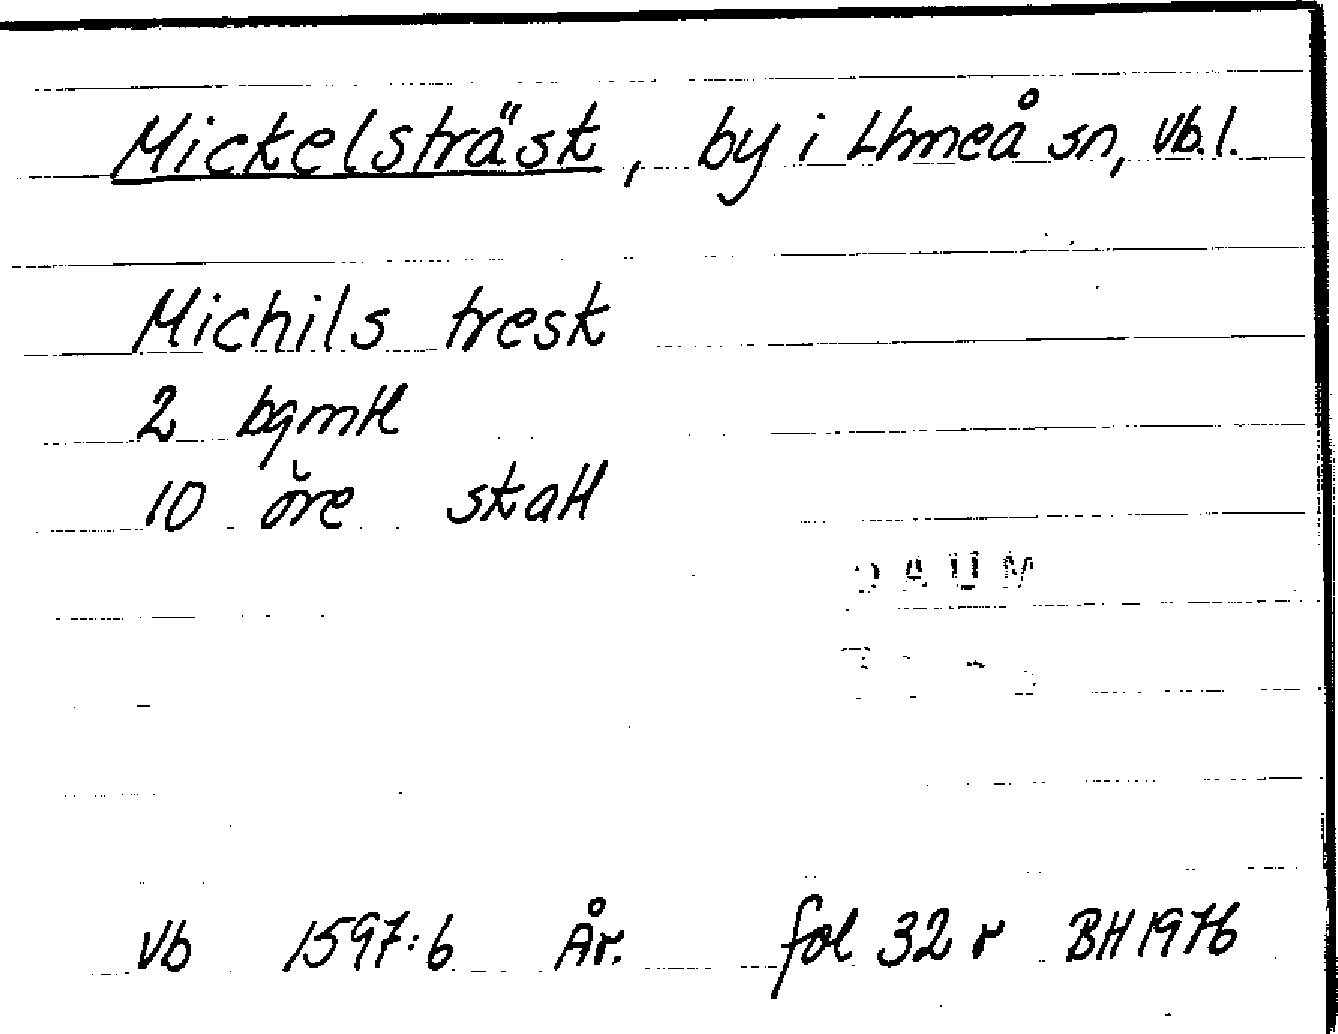 Mickelsträsk, by i Umeå sn, Vb.l.
Michils tresk
2 bgmtl
10 öre skatt
DAUM
Vb 1597:6 År. fol 32 r BH 1976